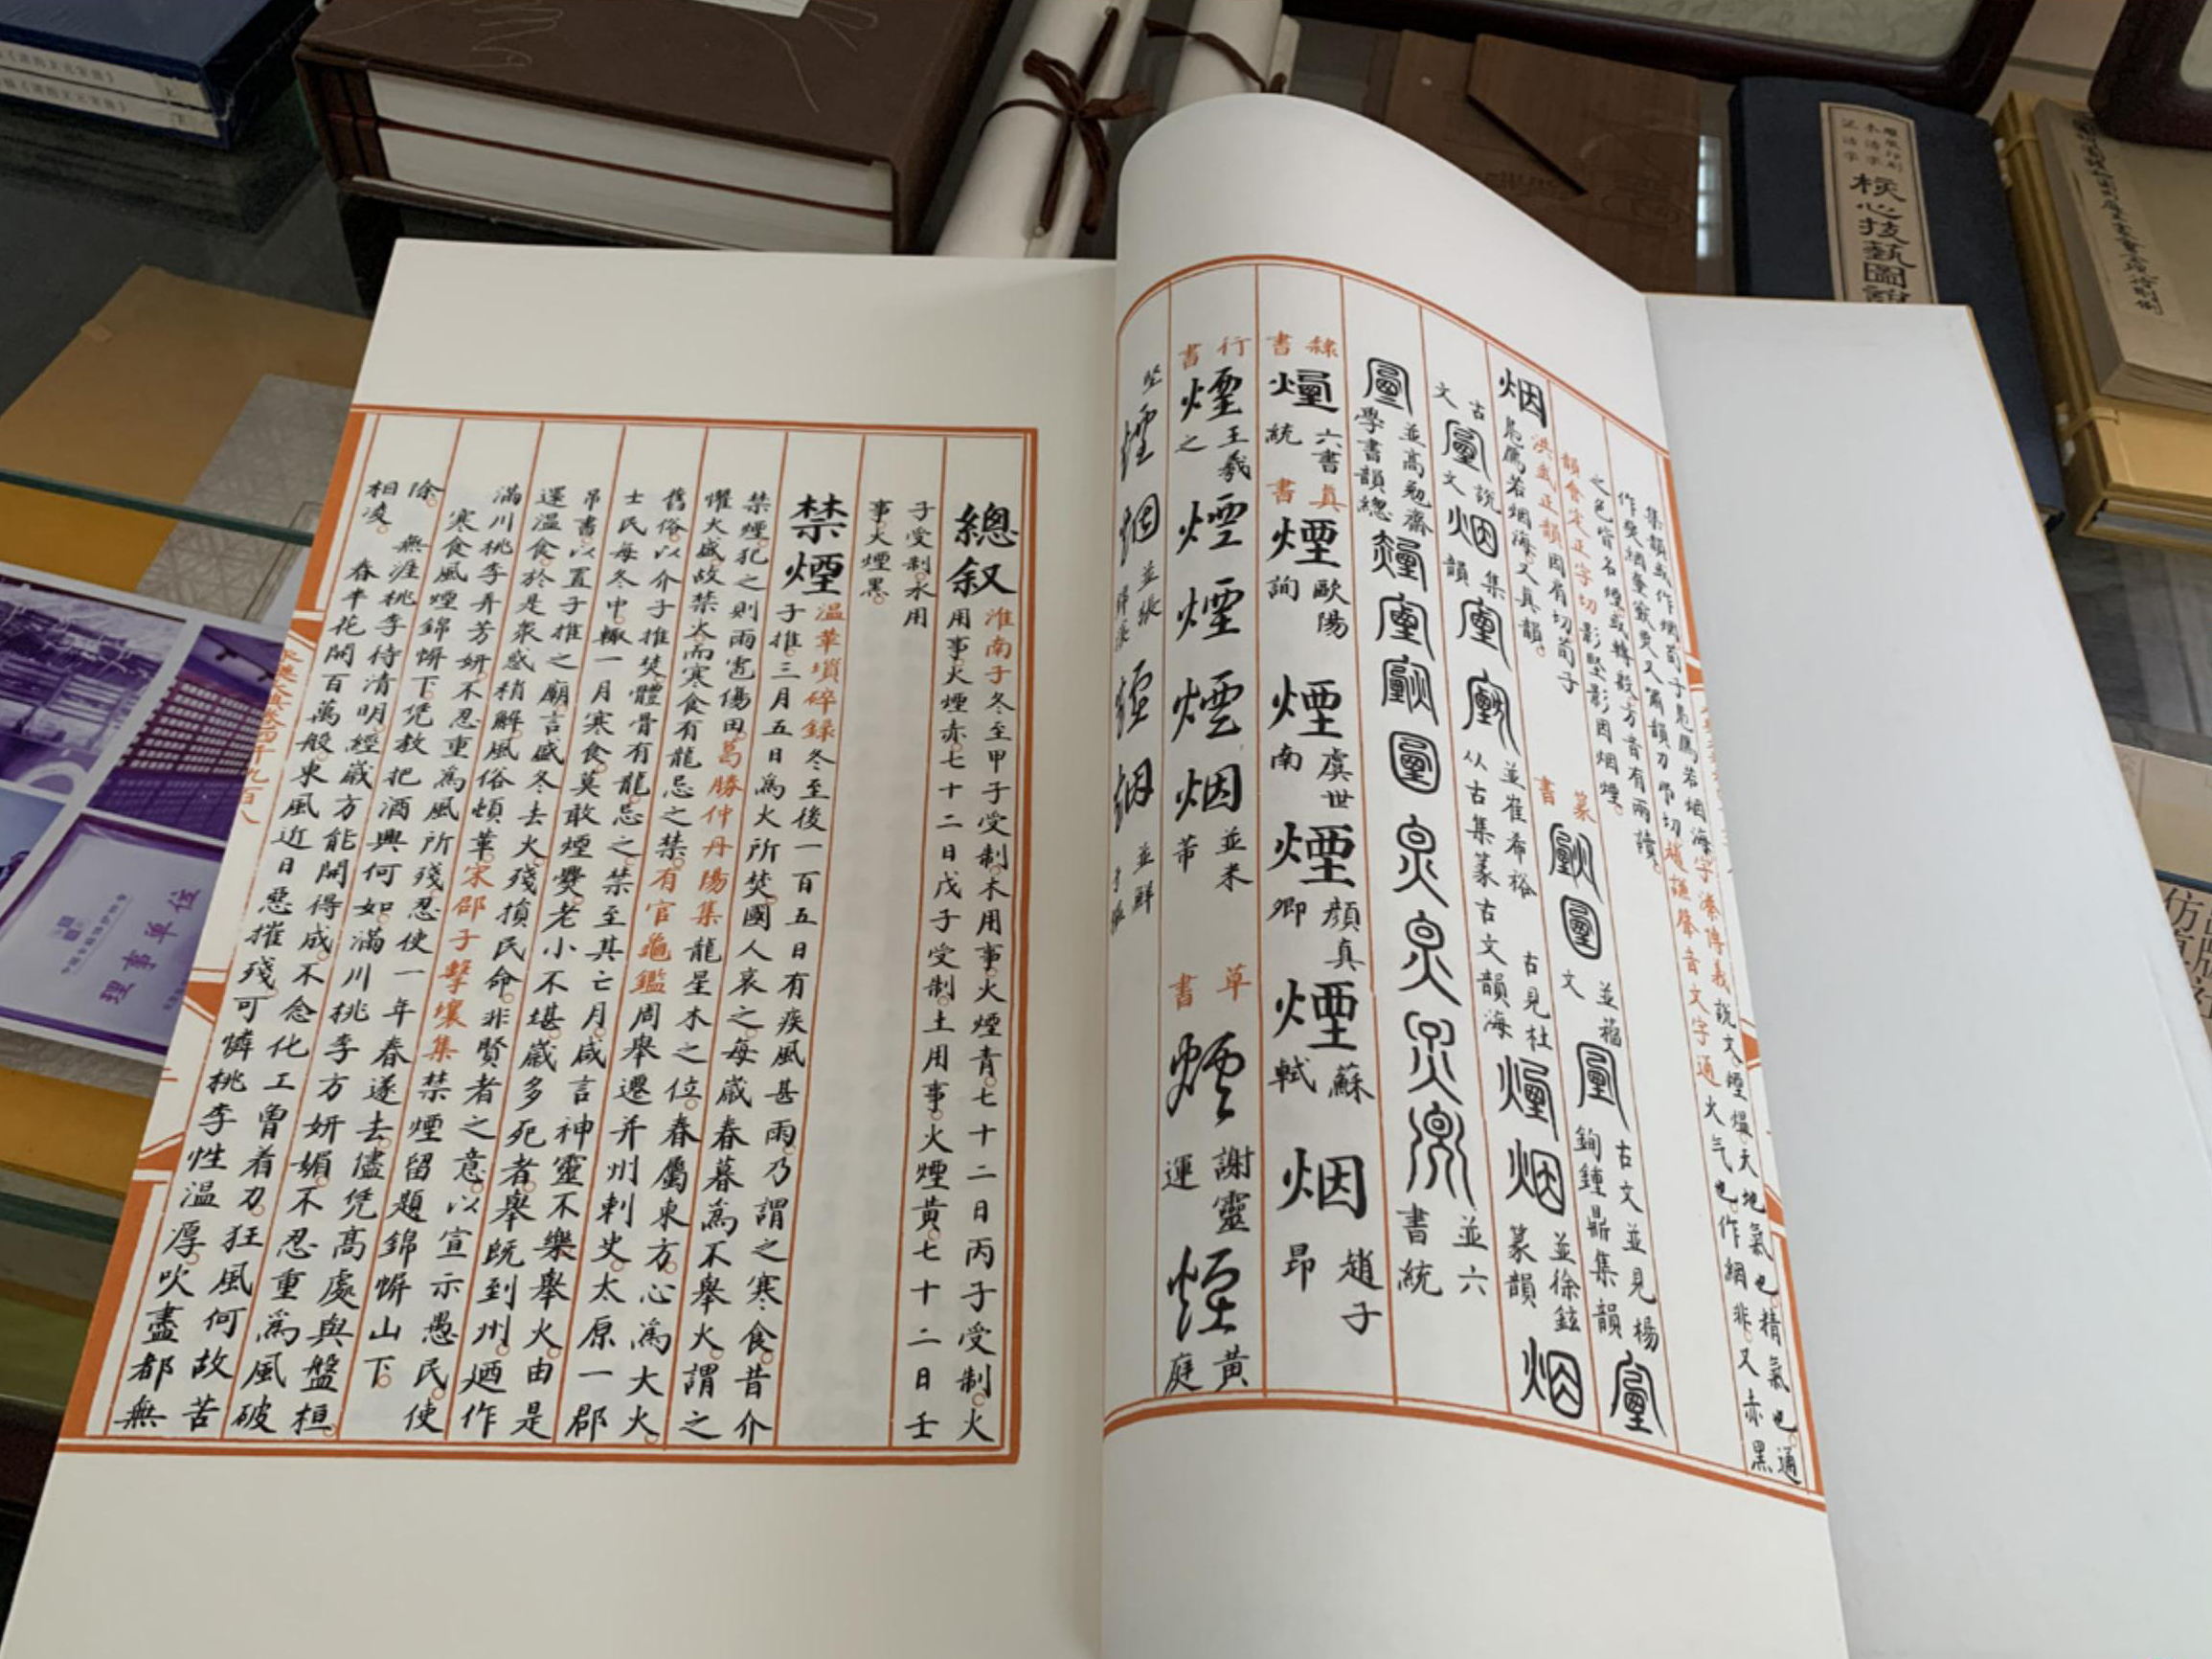 集韻或作烟荀子鳧鴈若烟海字潫博義說文煙熅天地氣也精氣也通
又甯韻刀吊切趙謙聲音文字通火气也作絪非又赤黑
之色皆名煙或轉般方音有兩讀
韻會定正字切影堅影因烟煙
洪武正韻因肩切荀子
烟鳧鴈若烟海又真韻
篆書
並福文
古文並見楊鉤鍾鼎集韻
古文
說文
集韻
並崔希裕从古集篆古文韻海
古見杜
並徐鉉篆韻
並高勉齋學書韻總
並六書統
隸書 煙 六書統
真書 煙 歐陽詢
煙 虞世南
煙 顏真卿
煙 蘇軾
烟 趙子昂
行書 煙 王羲之
煙 煙 煙 烟 並米芾
草書 煙 謝靈運
煙 黃庭
堅
煙 烟 並張
煙 烟 並鮮
總叙 淮南子冬至甲子受制木用事火煙青七十二日丙子受制火
用事火煙赤七十二日戊子受制土用事火煙黃七十二日壬
子受制水用
事火煙黑
禁煙 温革瑣碎録冬至後一百五日有疾風甚雨乃謂之寒食昔介
子推三月五日為火所焚國人哀之每歲春暮為不舉火謂之
禁煙犯之則雨雹傷田葛勝仲丹陽集龍星木之位春屬東方心為大火
懼火盛故禁火而寒食有龍忌之禁有官龜鑑周舉遷并州刺史太原一郡
舊俗以介子推焚體骨有龍忌之禁至其亡月咸言神靈不樂舉火由是
士民每冬中輙一月寒食莫敢煙爨老小不堪歲多死者舉既到州廼作
吊書以置子推之廟言盛冬去火殘損民命非賢者之意以宣示愚民使
還温食於是衆惑稍解風俗頓革宋邵子擊壤集禁煙留題錦幈山下
滿川桃李弄芳妍不忍重為風所殘忍使一年春遂去儘凭高處與盤桓
寒食風煙錦幈下凭教把酒興何如滿川桃李方妍媚不忍重為風破
除 無涯桃李待清明經歲方能開得成不念化工曾着力狂風何故苦
相凌 春半花開百萬般東風近日惡摧殘可憐桃李性温厚吹盡都無
理事單位
雕版印刷
木活字
泥活字
核心技藝圖